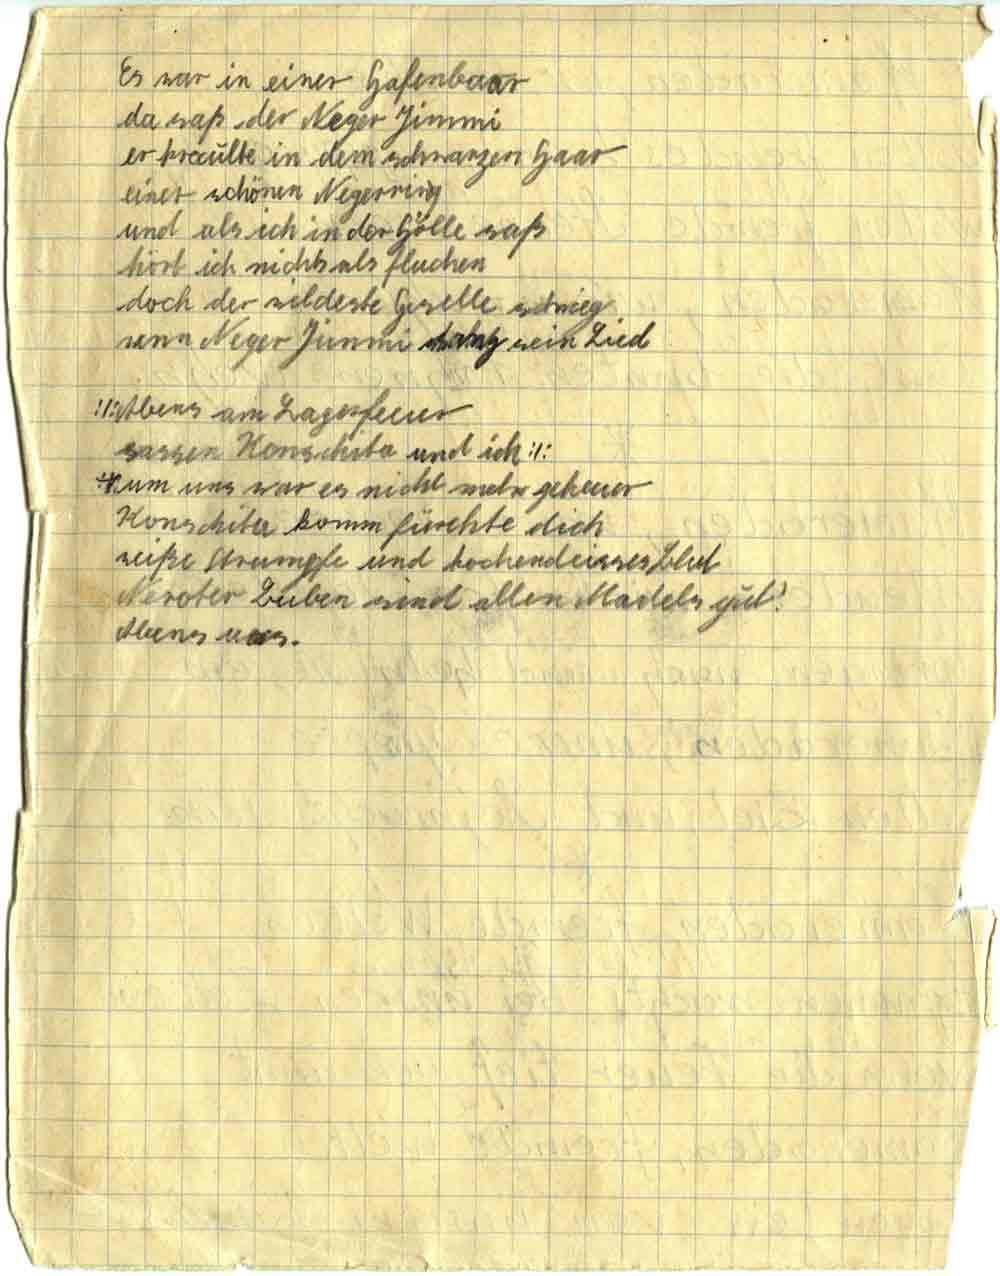 Es war in einer Hafenbaar
da saß der Neger Jimmi
er kraulte in dem schwarzen Haar
einer schönen Negerring
und als ich in der Hölle saß
hört ich nichts als fluchen
doch der wildeste Geselle schwieg
wenn Neger Jimmi sang sein Lied
:/:Abens am Lagerfeuer
sassen Konschita und ich :/:
um uns war es nicht mehr geheuer
Konschita komm fürchte dich
weiße Strümpfe und kochendeisses Blut
Neroter Buben sind allen Madels gut!
Abens usw.